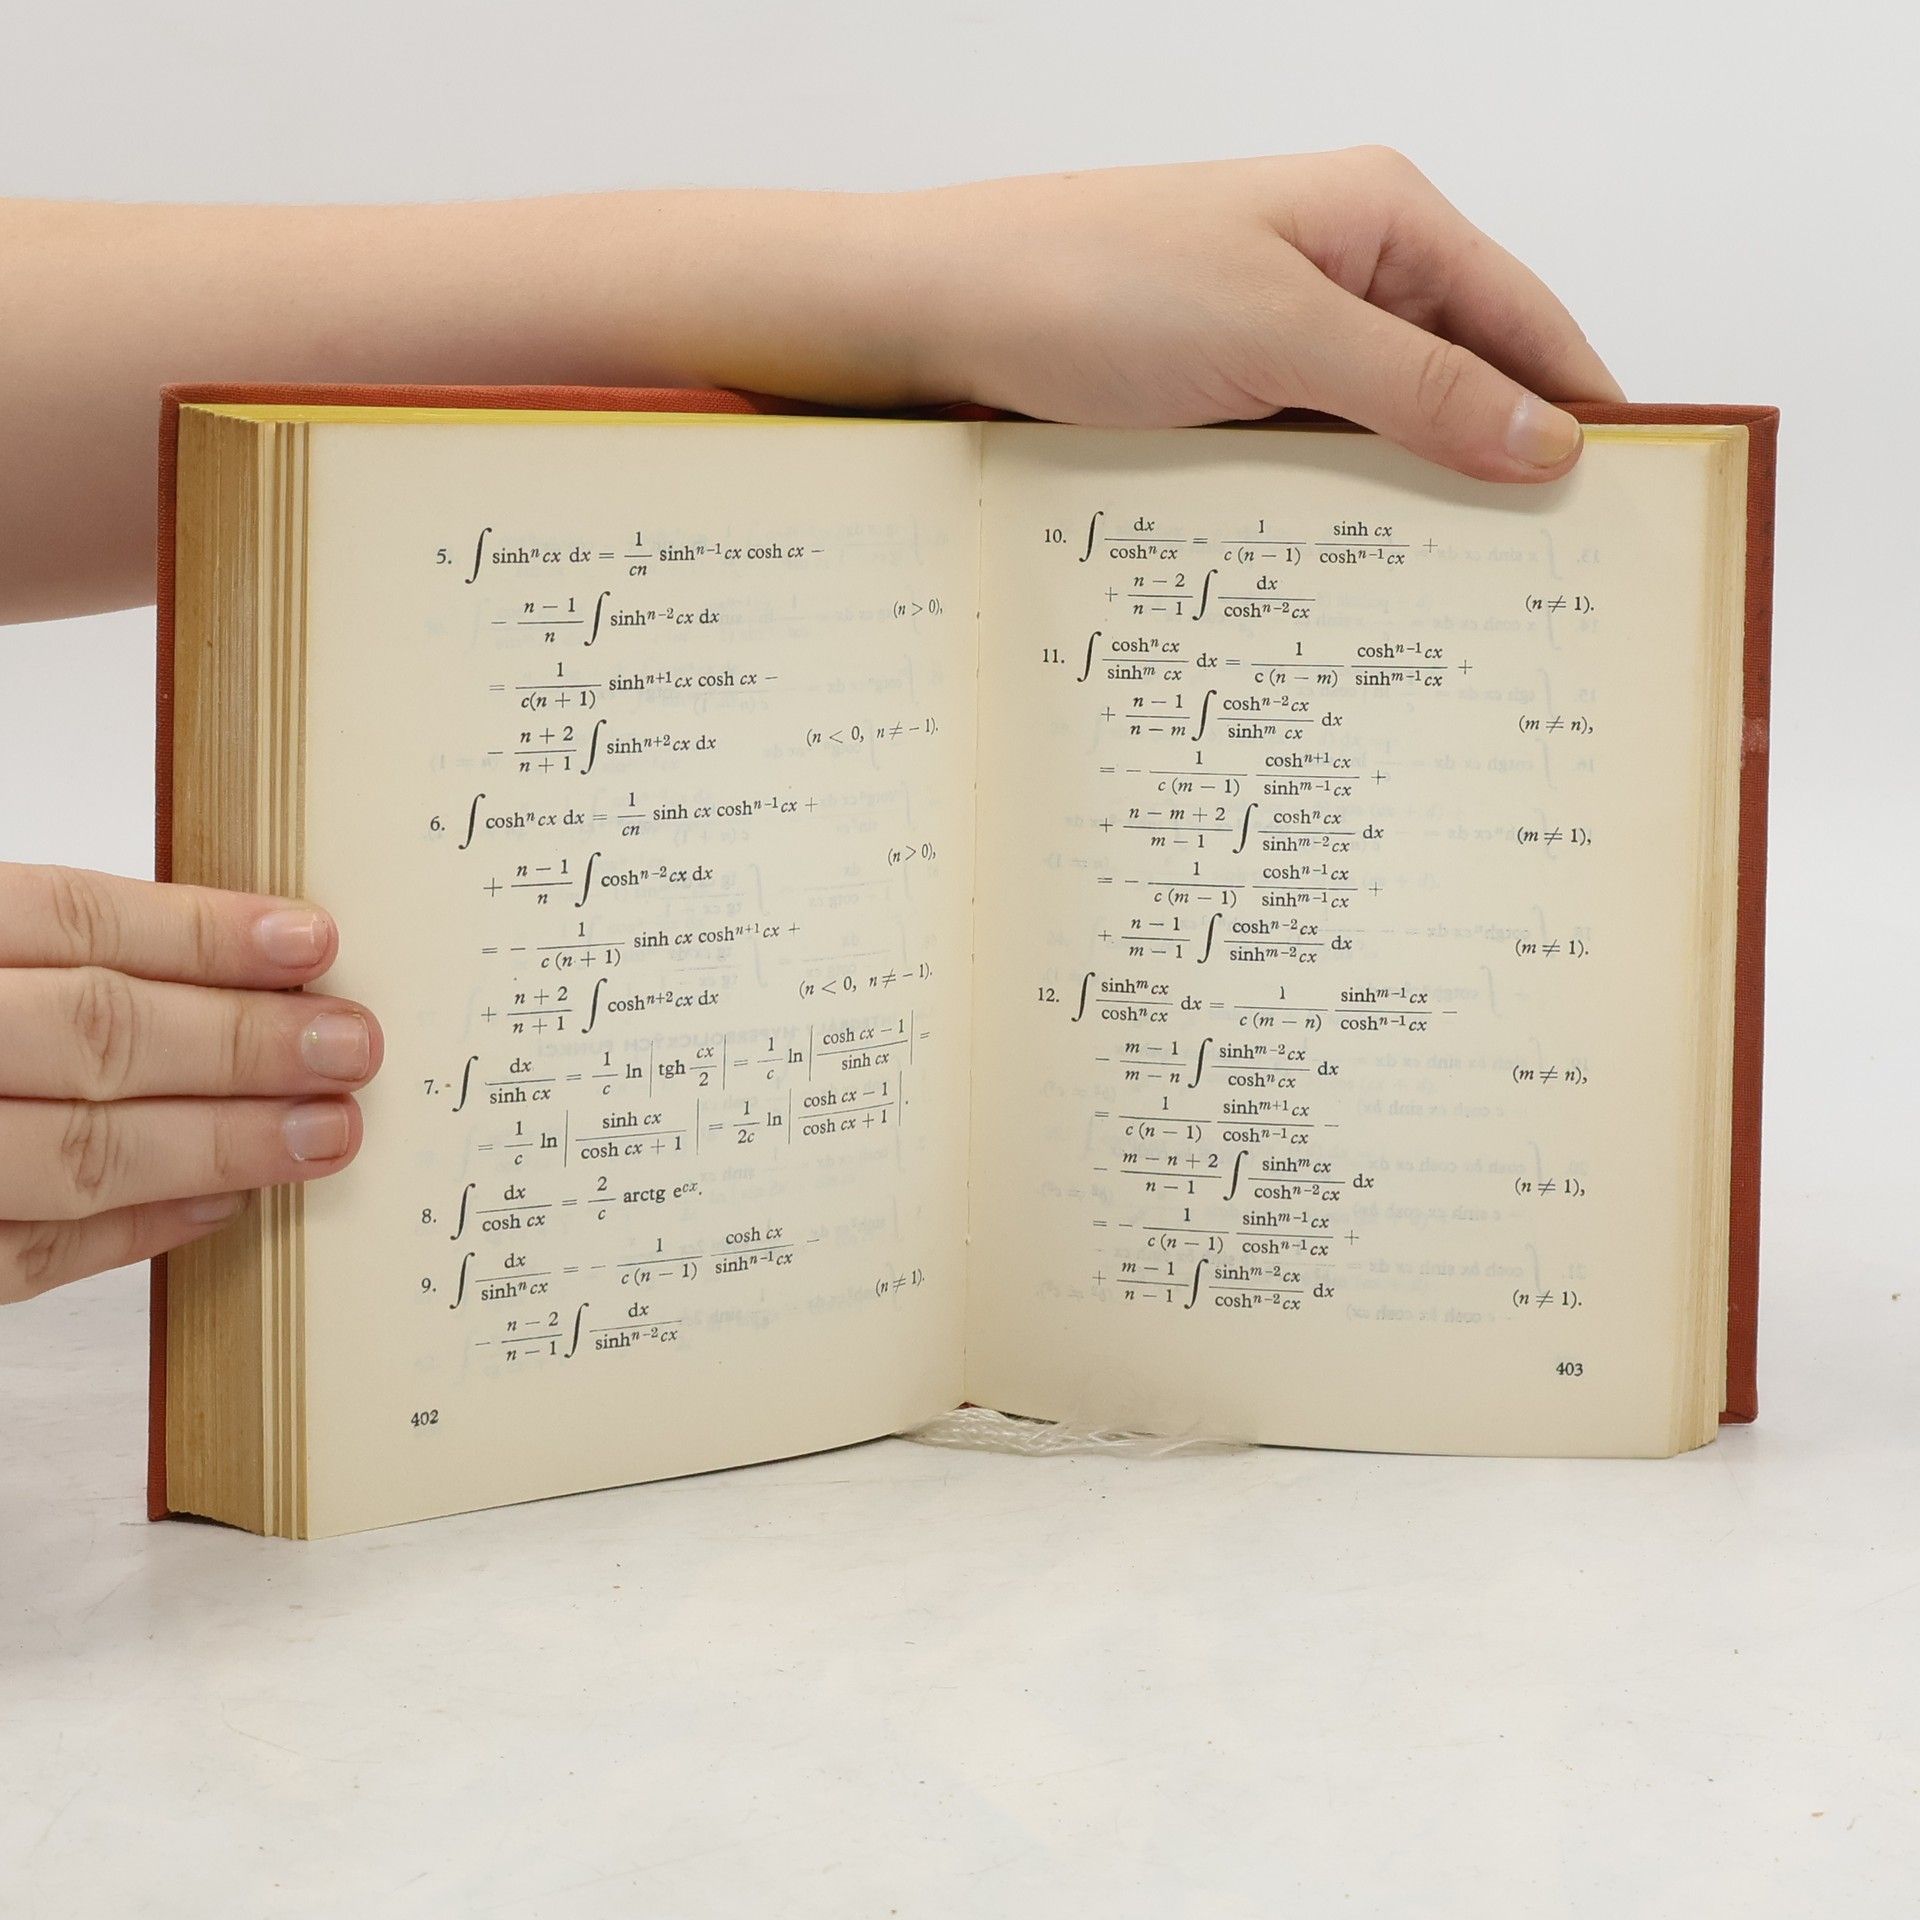 5. ∫ sinhⁿ cx dx = 1/(cn) sinhⁿ⁻¹ cx cosh cx −
− (n − 1)/n ∫ sinhⁿ⁻² cx dx (n > 0),
= 1/(c(n + 1)) sinhⁿ⁺¹ cx cosh cx −
− (n + 2)/(n + 1) ∫ sinhⁿ⁺² cx dx (n < 0, n ≠ − 1).
6. ∫ coshⁿ cx dx = 1/(cn) sinh cx coshⁿ⁻¹ cx +
+ (n − 1)/n ∫ coshⁿ⁻² cx dx (n > 0),
= − 1/(c (n + 1)) sinh cx coshⁿ⁺¹ cx +
+ (n + 2)/(n + 1) ∫ coshⁿ⁺² cx dx (n < 0, n ≠ − 1).
7. ∫ dx/(sinh cx) = 1/c ln |tgh cx/2| = 1/c ln |(cosh cx − 1)/(sinh cx)| =
= 1/c ln |(sinh cx)/(cosh cx + 1)| = 1/(2c) ln |(cosh cx − 1)/(cosh cx + 1)|.
8. ∫ dx/(cosh cx) = 2/c arctg e^(cx).
9. ∫ dx/(sinhⁿ cx) = − 1/(c (n − 1)) (cosh cx)/(sinhⁿ⁻¹ cx) −
− (n − 2)/(n − 1) ∫ dx/(sinhⁿ⁻² cx) (n ≠ 1).
402
10. ∫ dx/(coshⁿ cx) = 1/(c (n − 1)) (sinh cx)/(coshⁿ⁻¹ cx) +
+ (n − 2)/(n − 1) ∫ dx/(coshⁿ⁻² cx) (n ≠ 1).
11. ∫ (coshⁿ cx)/(sinhᵐ cx) dx = 1/(c (n − m)) (coshⁿ⁻¹ cx)/(sinhᵐ⁻¹ cx) +
+ (n − 1)/(n − m) ∫ (coshⁿ⁻² cx)/(sinhᵐ cx) dx (m ≠ n),
= − 1/(c (m − 1)) (coshⁿ⁺¹ cx)/(sinhᵐ⁻¹ cx) +
+ (n − m + 2)/(m − 1) ∫ (coshⁿ cx)/(sinhᵐ⁻² cx) dx (m ≠ 1),
= − 1/(c (m − 1)) (coshⁿ⁻¹ cx)/(sinhᵐ⁻¹ cx) +
+ (n − 1)/(m − 1) ∫ (coshⁿ⁻² cx)/(sinhᵐ⁻² cx) dx (m ≠ 1).
12. ∫ (sinhᵐ cx)/(coshⁿ cx) dx = 1/(c (m − n)) (sinhᵐ⁻¹ cx)/(coshⁿ⁻¹ cx) −
− (m − 1)/(m − n) ∫ (sinhᵐ⁻² cx)/(coshⁿ cx) dx (m ≠ n),
= 1/(c (n − 1)) (sinhᵐ⁺¹ cx)/(coshⁿ⁻¹ cx) −
− (m − n + 2)/(n − 1) ∫ (sinhᵐ cx)/(coshⁿ⁻² cx) dx (n ≠ 1),
= − 1/(c (n − 1)) (sinhᵐ⁻¹ cx)/(coshⁿ⁻¹ cx) +
+ (m − 1)/(n − 1) ∫ (sinhᵐ⁻² cx)/(coshⁿ⁻² cx) dx (n ≠ 1).
403